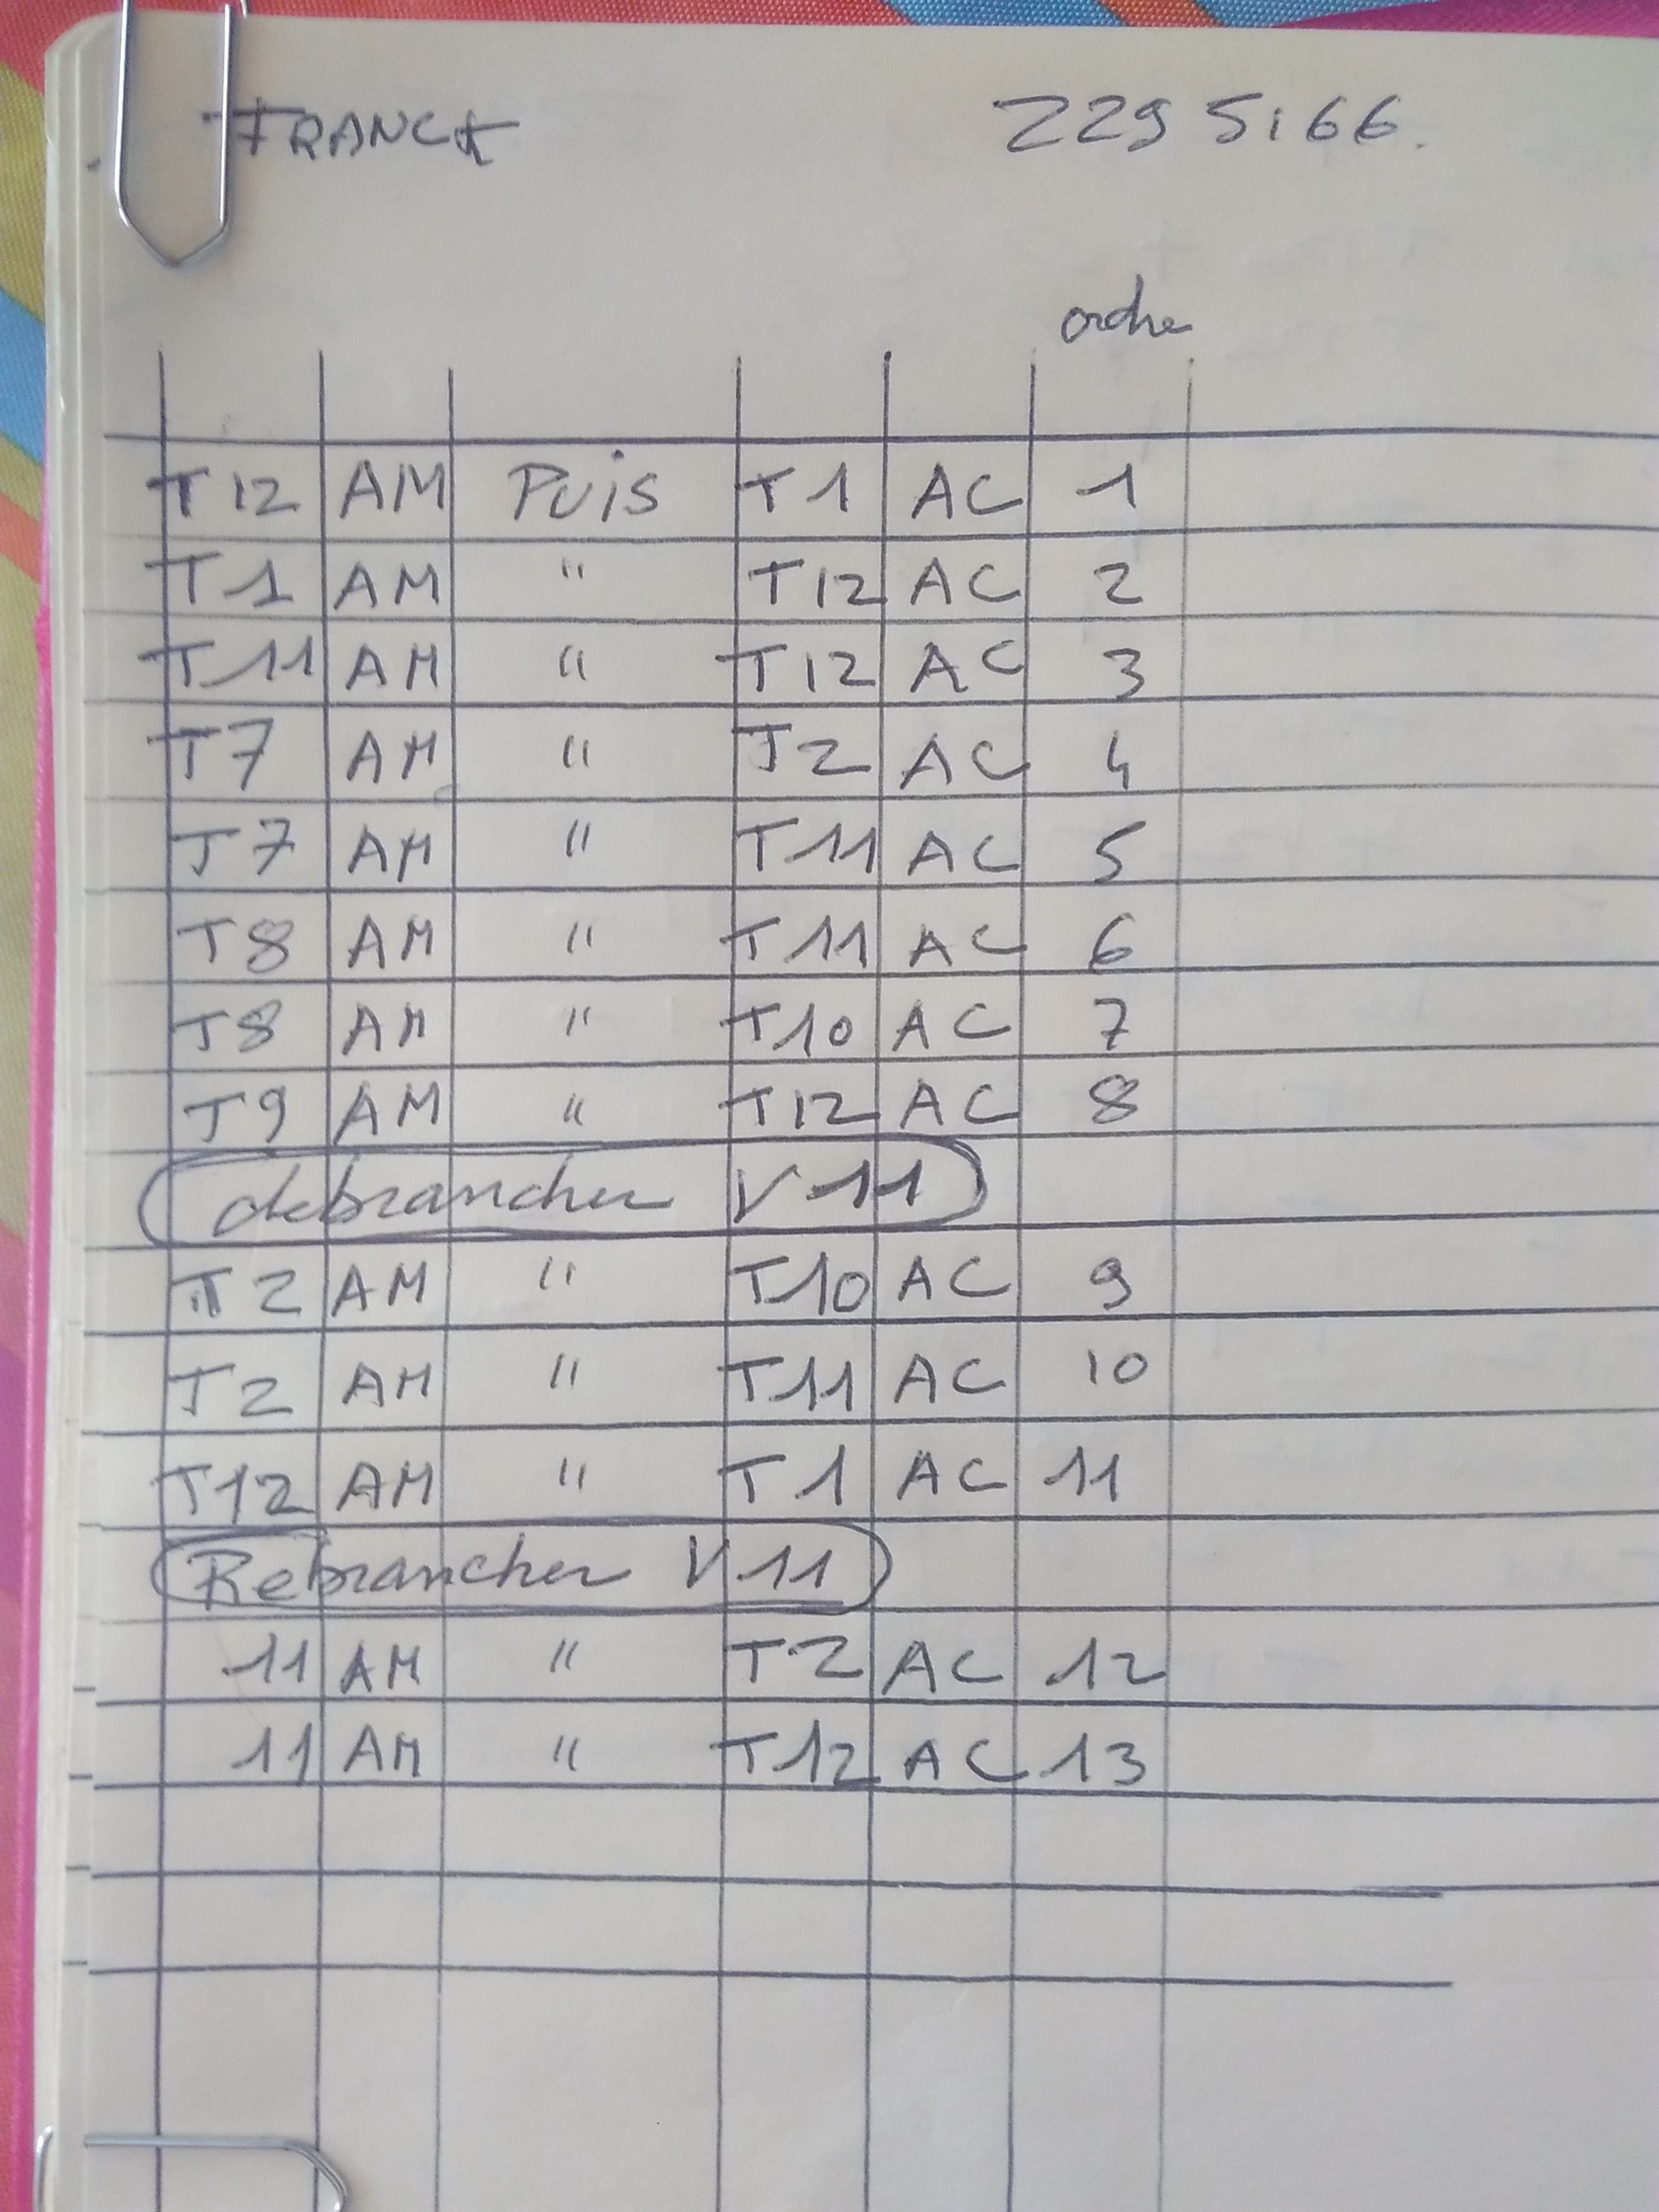 FRANCK 229 5166.
ordre
T12 AM Puis T1 AC 1
T1 AM " T12 AC 2
T11 AM " T12 AC 3
T7 AM " T2 AC 4
T7 AM " T11 AC 5
T8 AM " T11 AC 6
T8 AM " T10 AC 7
T9 AM " T12 AC 8
debrancher V11
T2 AM " T10 AC 9
T2 AM " T11 AC 10
T12 AM " T1 AC 11
Rebrancher V11
11 AM " T2 AC 12
11 AM " T12 AC 13